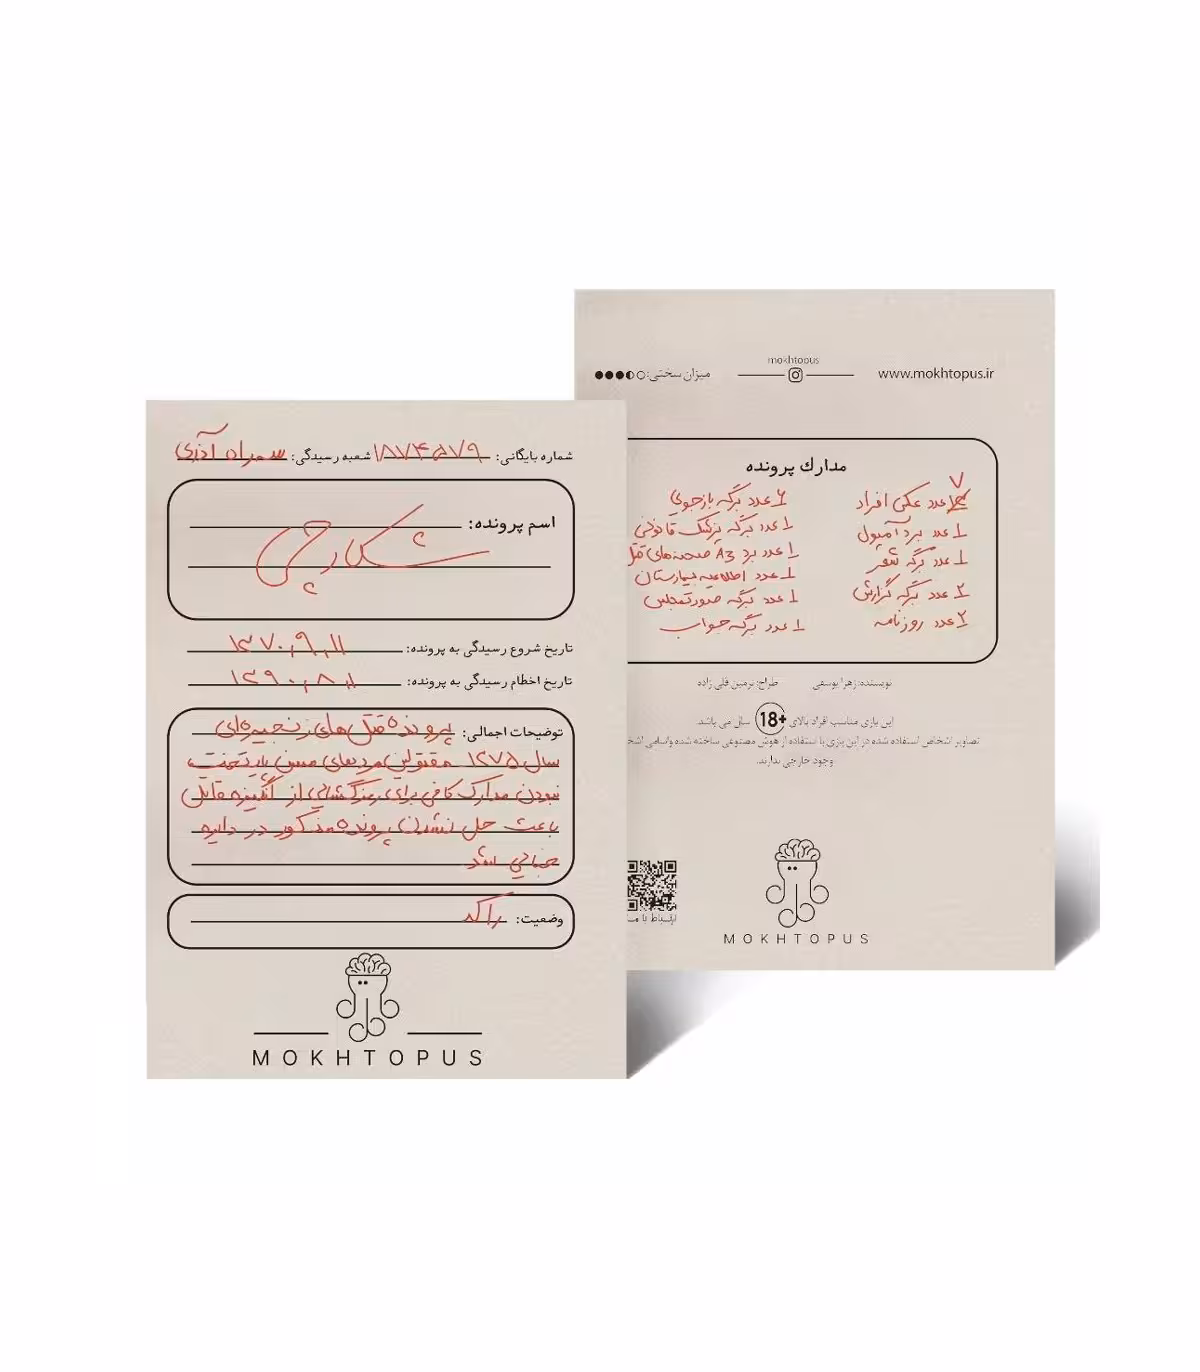 شماره بایگانی: ۱۸۷۴۵۷۹ شعبه رسیدگی: سهراه آذری
اسم پرونده:
شکارچی
تاریخ شروع رسیدگی به پرونده: ۱۳۷۰,۹,۱۱
تاریخ اخطام رسیدگی به پرونده: ۱۳۹۰,۸,۱
توضیحات اجمالی: پرونده قتل‌های زنجیره‌ای
سال ۱۲۷۵ مقتولین مردهای مسن پایتخت
نبودن مدارک کافی برای رمزگشایی از انگیزه قاتل
باعث حل نشدن پرونده مذکور در دایره
جنایی شد
وضعیت: راکد
MOKHTOPUS
میزان سختی:
mokhtopus
www.mokhtopus.ir
مدارک پرونده
۷ عدد عکس افراد
۱ عدد برد آمپول
۱ عدد برگه شعر
۲ عدد برگه گزارش
۲ عدد روزنامه
۶ عدد برگه بازجویی
۱ عدد برگه پزشک قانونی
۱ عدد برد A3 صحنه‌های قتل
۱ عدد اطلاعیه بیمارستان
۱ عدد برگه صورتجلس
۱ عدد برگه جواب
نویسنده: زهرا یوسفی طراح: نرمین قلی زاده
این بازی مناسب افراد بالای +18 سال می باشد.
تصاویر اشخاص استفاده شده در این بازی با استفاده از هوش مصنوعی ساخته شده واسامی
وجود خارجی ندارند.
ارتباط با
MOKHTOPUS